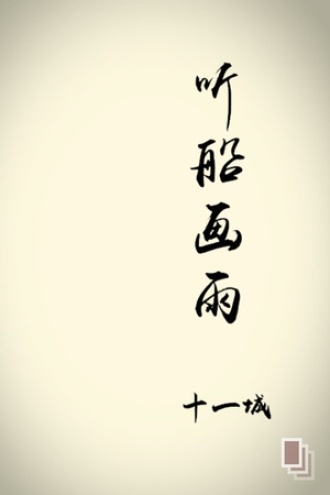 听船画雨
十一城